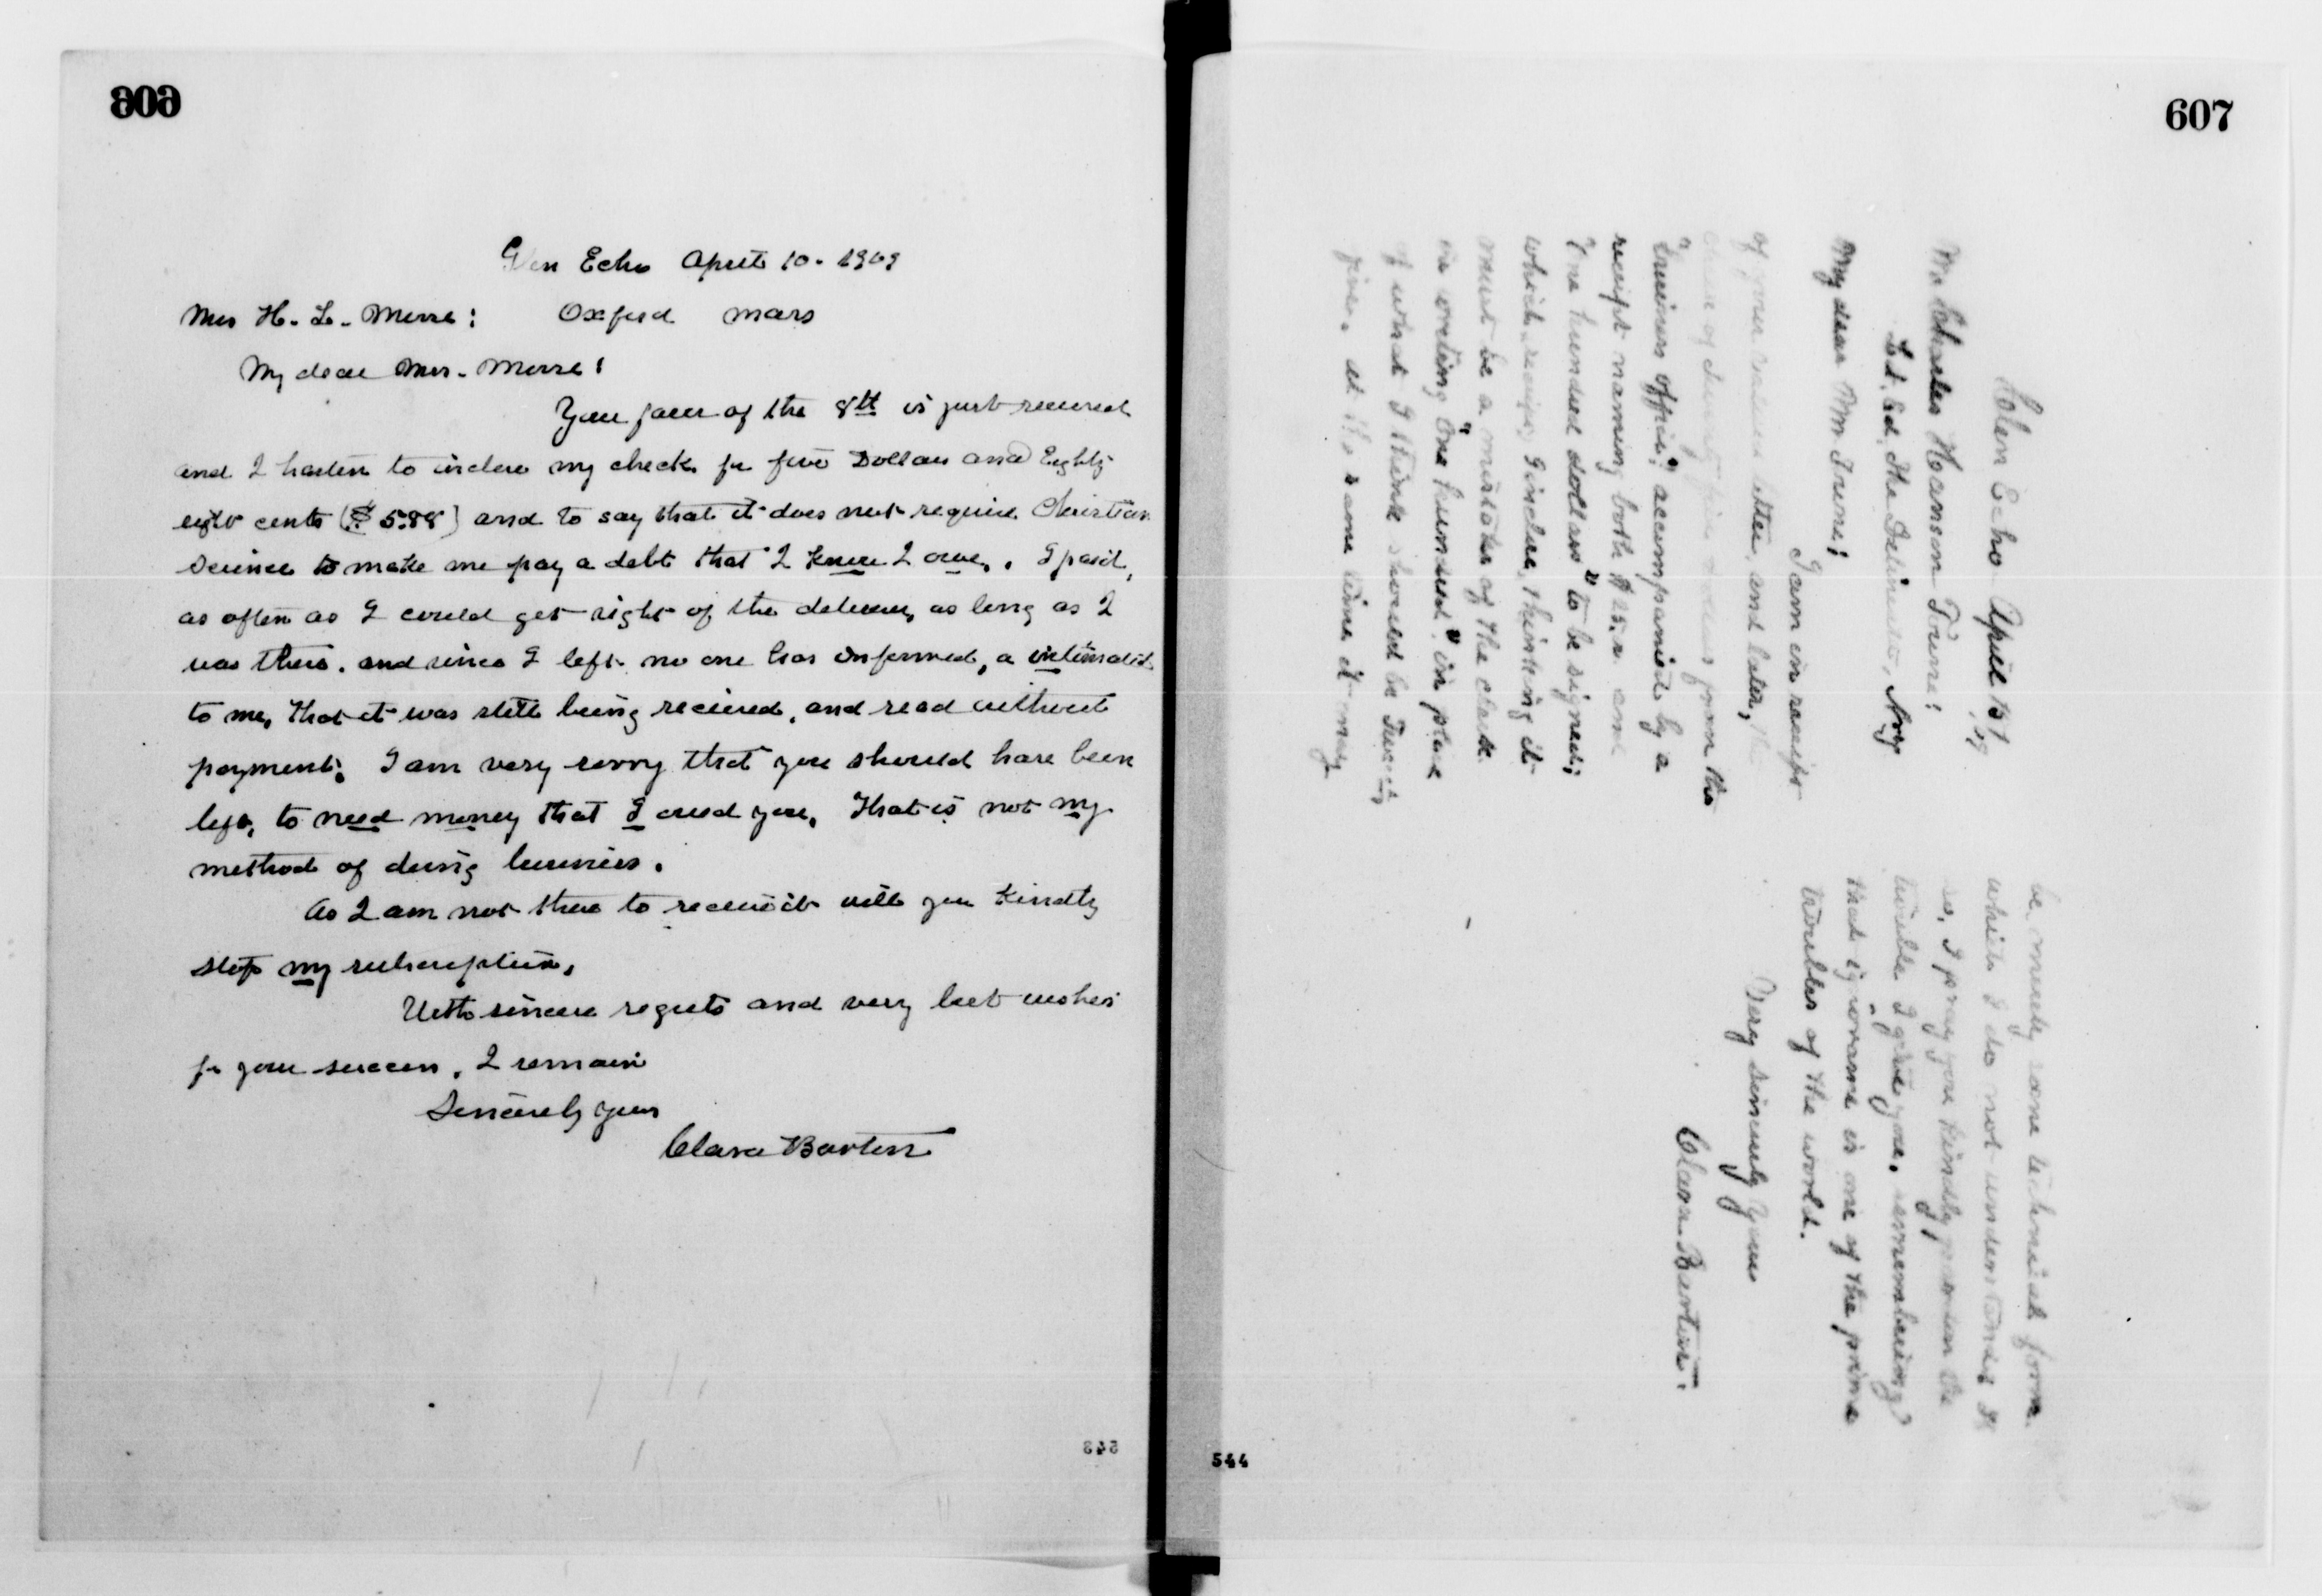 606
Glen Echo April 10 - 1909
Mrs H. L. Morse : Oxford Mass
My dear Mrs. Morse :
Your favor of the 8th is just received
and I hasten to inclose my check for five Dollars and Eighty
eight cents ($ 5.88) and to say that it does not require Christian
Science to make me pay a debt that I know I owe. I paid,
as often as I could get sight of the delivery, as long as I
was there. and since I left no one has informed, or intimated
to me, that it was still being recieved, and read without
payment. I am very sorry that you should have been
left, to need money that I owed you. That is not my
method of doing business.
As I am not there to recieve it will you kindly
stop my subscription.
With sincere regrets and very best wishes
for your success, I remain
Sincerely yours
Clara Barton
543
607
Glen Echo April 13/
/09
Mr Charles Hanson Towne :
Lit. Ed. The Delineator, N.Y.
My dear Mr Towne :
I am in receipt
of your valued letter, and later, the
check of twenty five dollars from the
"business office" accompanied by a
receipt naming both $25. and
"One hundred dollars" to be signed;
which receipt I inclose, thinking it
must be a mistake of the clerk
in writing "One hundred" in place
of what I think should be Twenty
five. at the same time it may
be, merely some technical form
which I do not understand. If
so, I pray you kindly pardon the
trouble I give you, remembering
that ignorance is one of the prime
troubles of the world.
Very sincerely yours
Clara Barton.
544